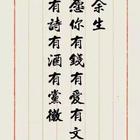 余生
愿你有錢有爱有文
有詩有酒有黨徽